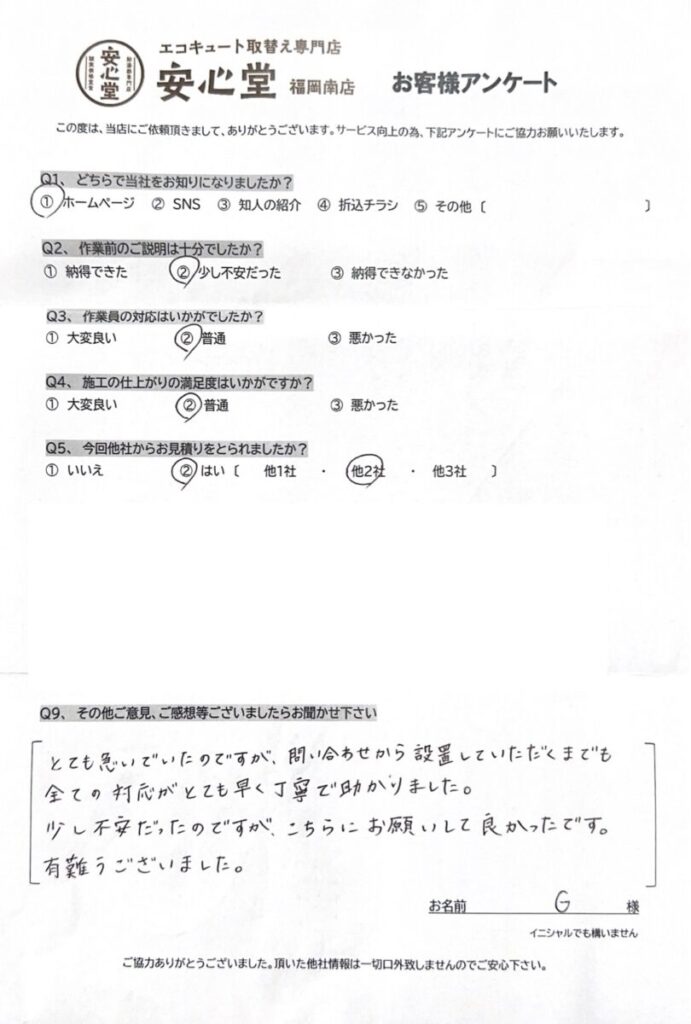 エコキュート取替え専門店
安心堂 福岡南店 お客様アンケート
安心堂
この度は、当店にご依頼頂きまして、ありがとうございます。サービス向上の為、下記アンケートにご協力お願いいたします。
Q1、 どちらで当社をお知りになりましたか?
① ホームページ ② SNS ③ 知人の紹介 ④ 折込チラシ ⑤ その他〔 〕
Q2、 作業前のご説明は十分でしたか?
① 納得できた ② 少し不安だった ③ 納得できなかった
Q3、 作業員の対応はいかがでしたか?
① 大変良い ② 普通 ③ 悪かった
Q4、 施工の仕上がりの満足度はいかがですか?
① 大変良い ② 普通 ③ 悪かった
Q5、 今回他社からお見積りをとられましたか?
① いいえ ② はい〔 他1社 ・ 他2社 ・ 他3社 〕
Q9、 その他ご意見、ご感想等ございましたらお聞かせ下さい
とても急いでいたのですが、問い合わせから設置していただくまでも
全ての対応がとても早く丁寧で助かりました。
少し不安だったのですが、こちらにお願いして良かったです。
有難うございました。
お名前 G 様
イニシャルでも構いません
ご協力ありがとうございました。頂いた他社情報は一切口外致しませんのでご安心下さい。